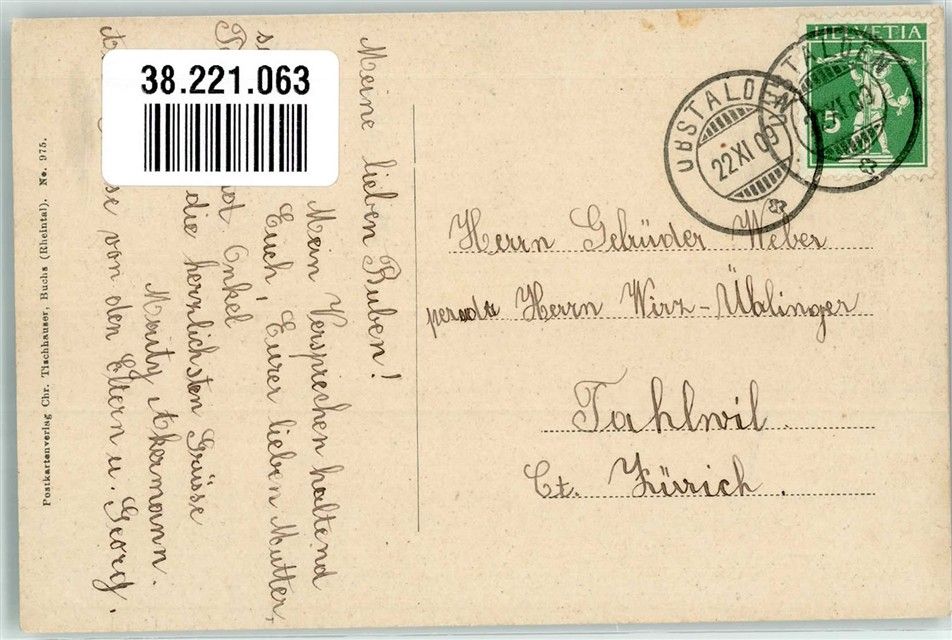 38.221.063
Meine lieben Buben!
Mein Versprechen haltend
Euch, Eurer lieben Mutter,
Onkel
die herzlichsten Grüsse
Moritz Akermann.
von den Eltern u. Georg.
Postkartenverlag Chr. Tischhauser, Buchs (Rheintal). No. 975.
HELVETIA
5
OBSTALDEN
22 XI 09
OBSTALDEN
22 XI 09
Herrn Gebrüder Weber
Herrn Wirz-Üblinger
Tahlwil.
Ct. Zürich.